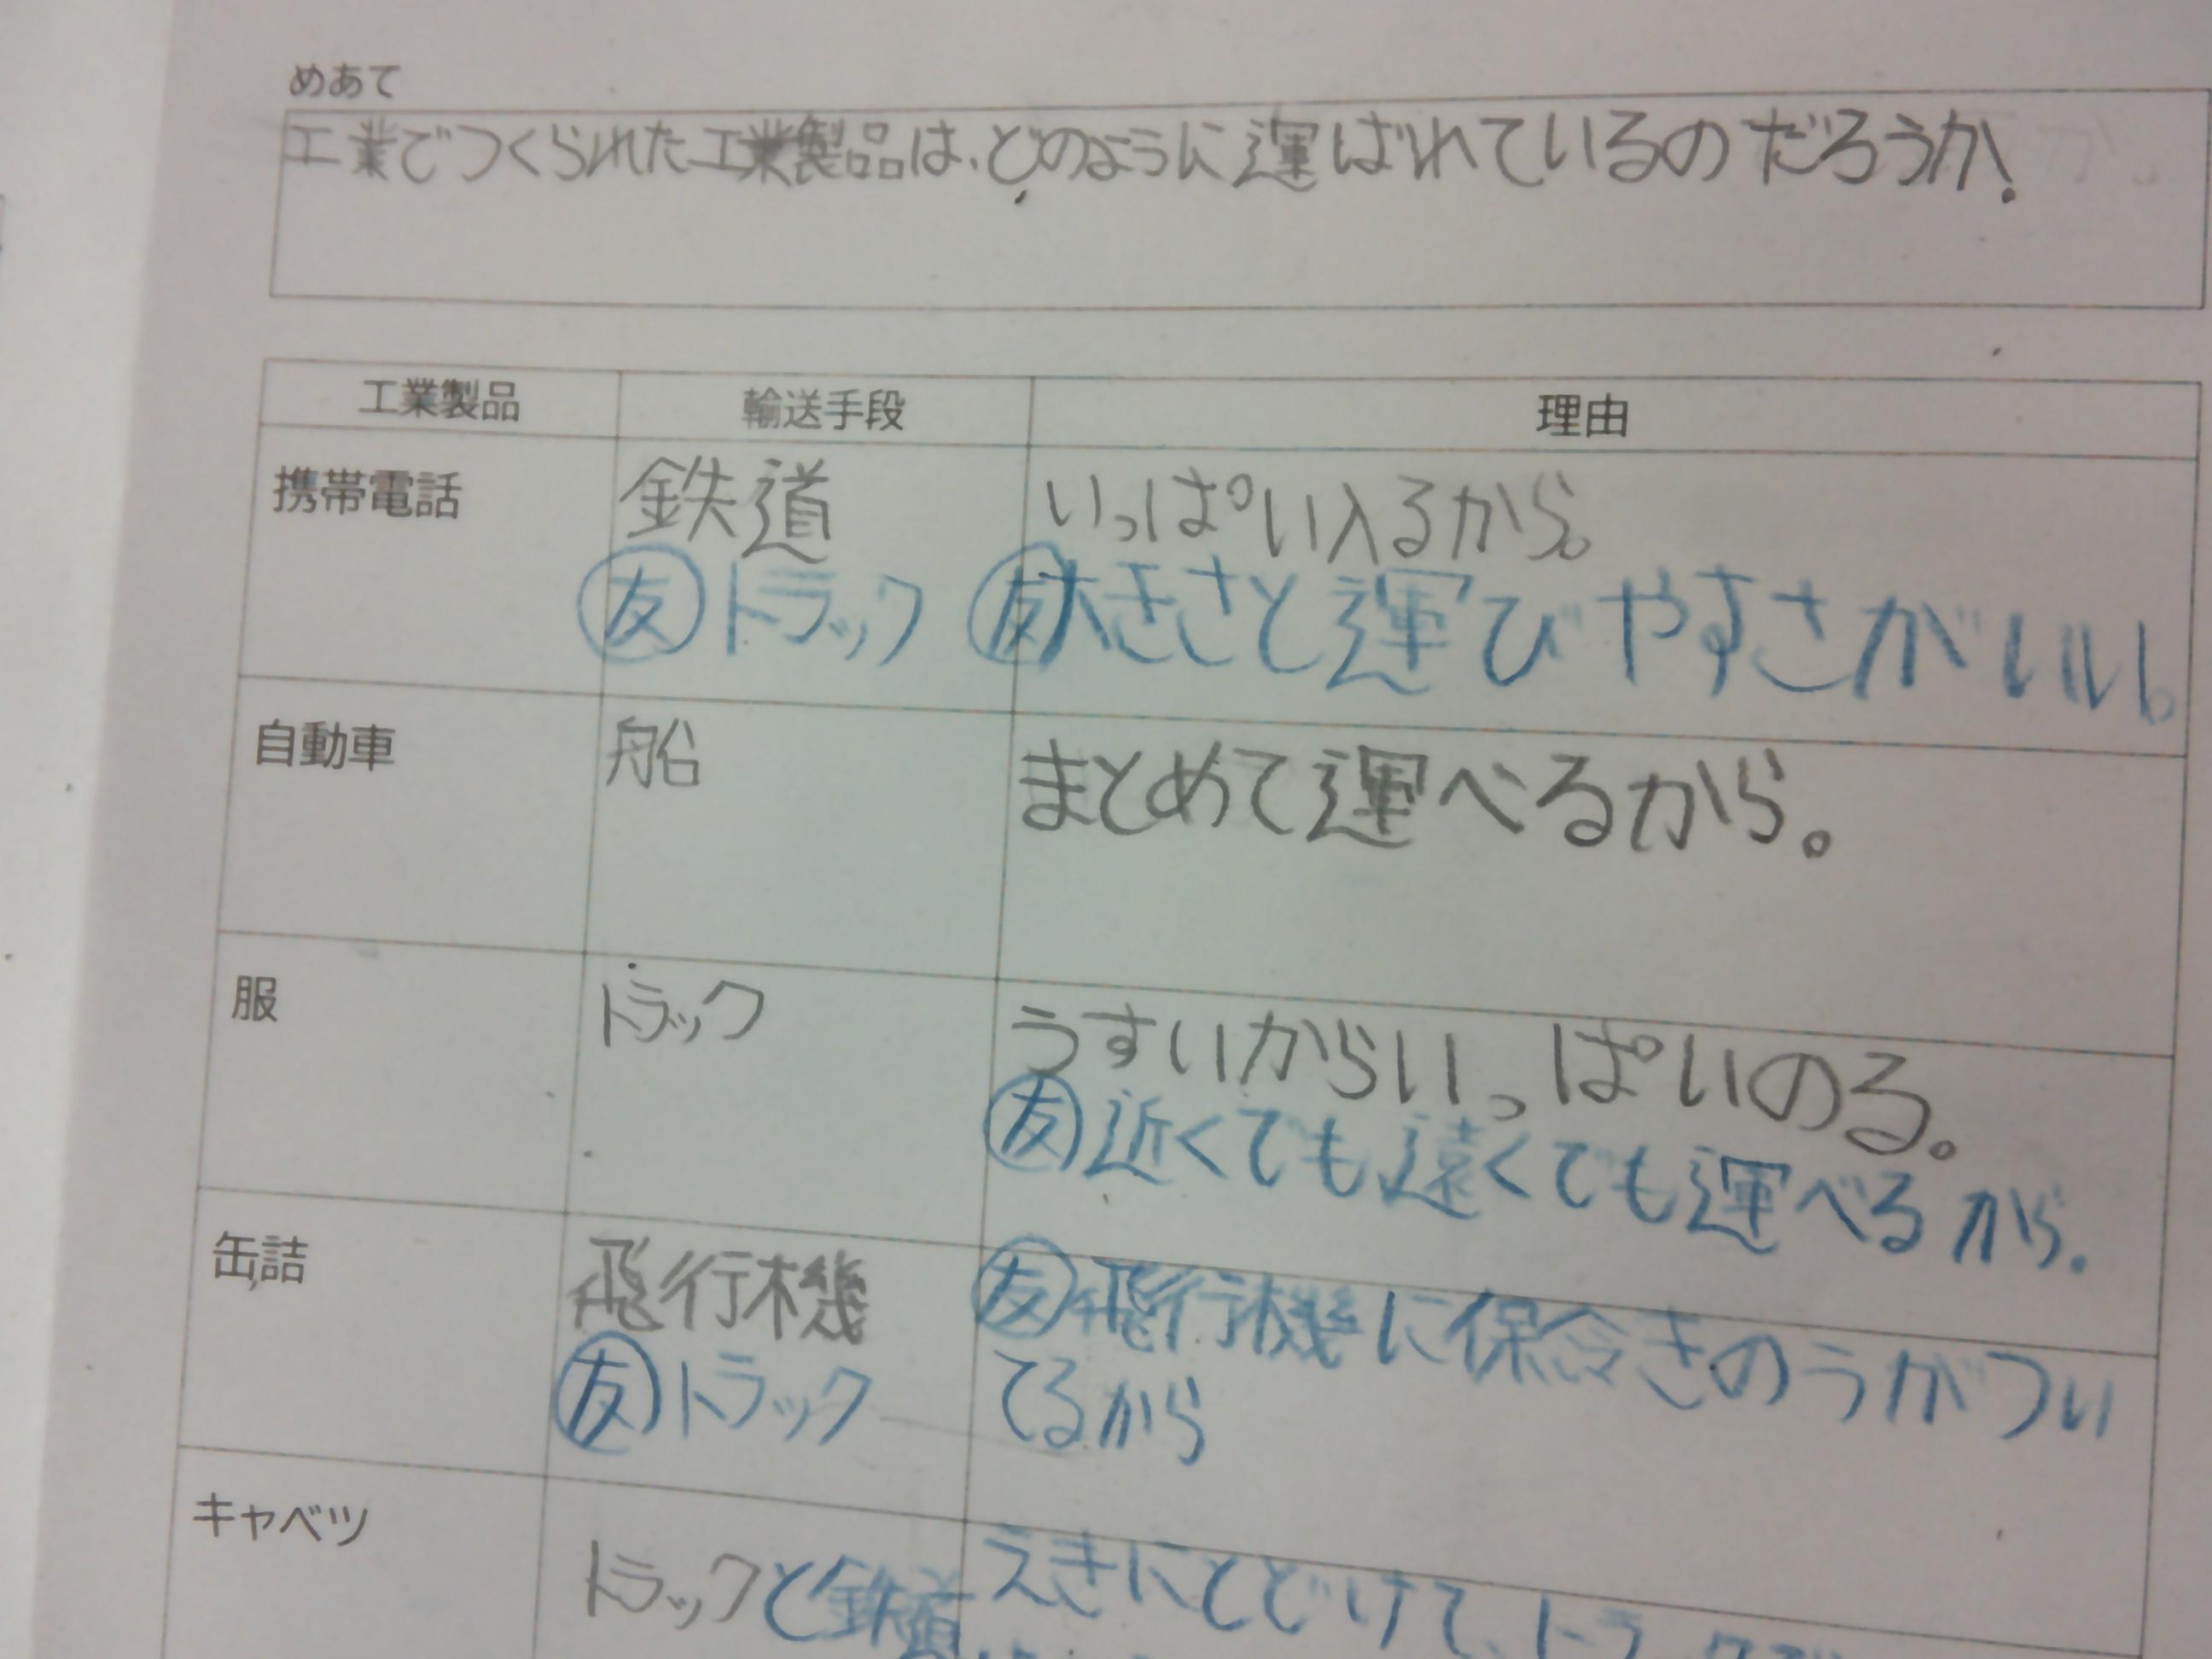 めあて
工業でつくられた工業製品は、どのように運ばれているのだろうか。
工業製品 輸送手段 理由
携帯電話 鉄道 いっぱい入るから。
友 トラック 友 大きさと運びやすさがいい。
自動車 船 まとめて運べるから。
服 トラック うすいからいっぱいのる。
友 近くでも遠くでも運べるから。
缶詰 飛行機 友 飛行機に保冷きのうがつい
友 トラック てるから
キャベツ
トラックと鉄道 えきにとどけて、トラ